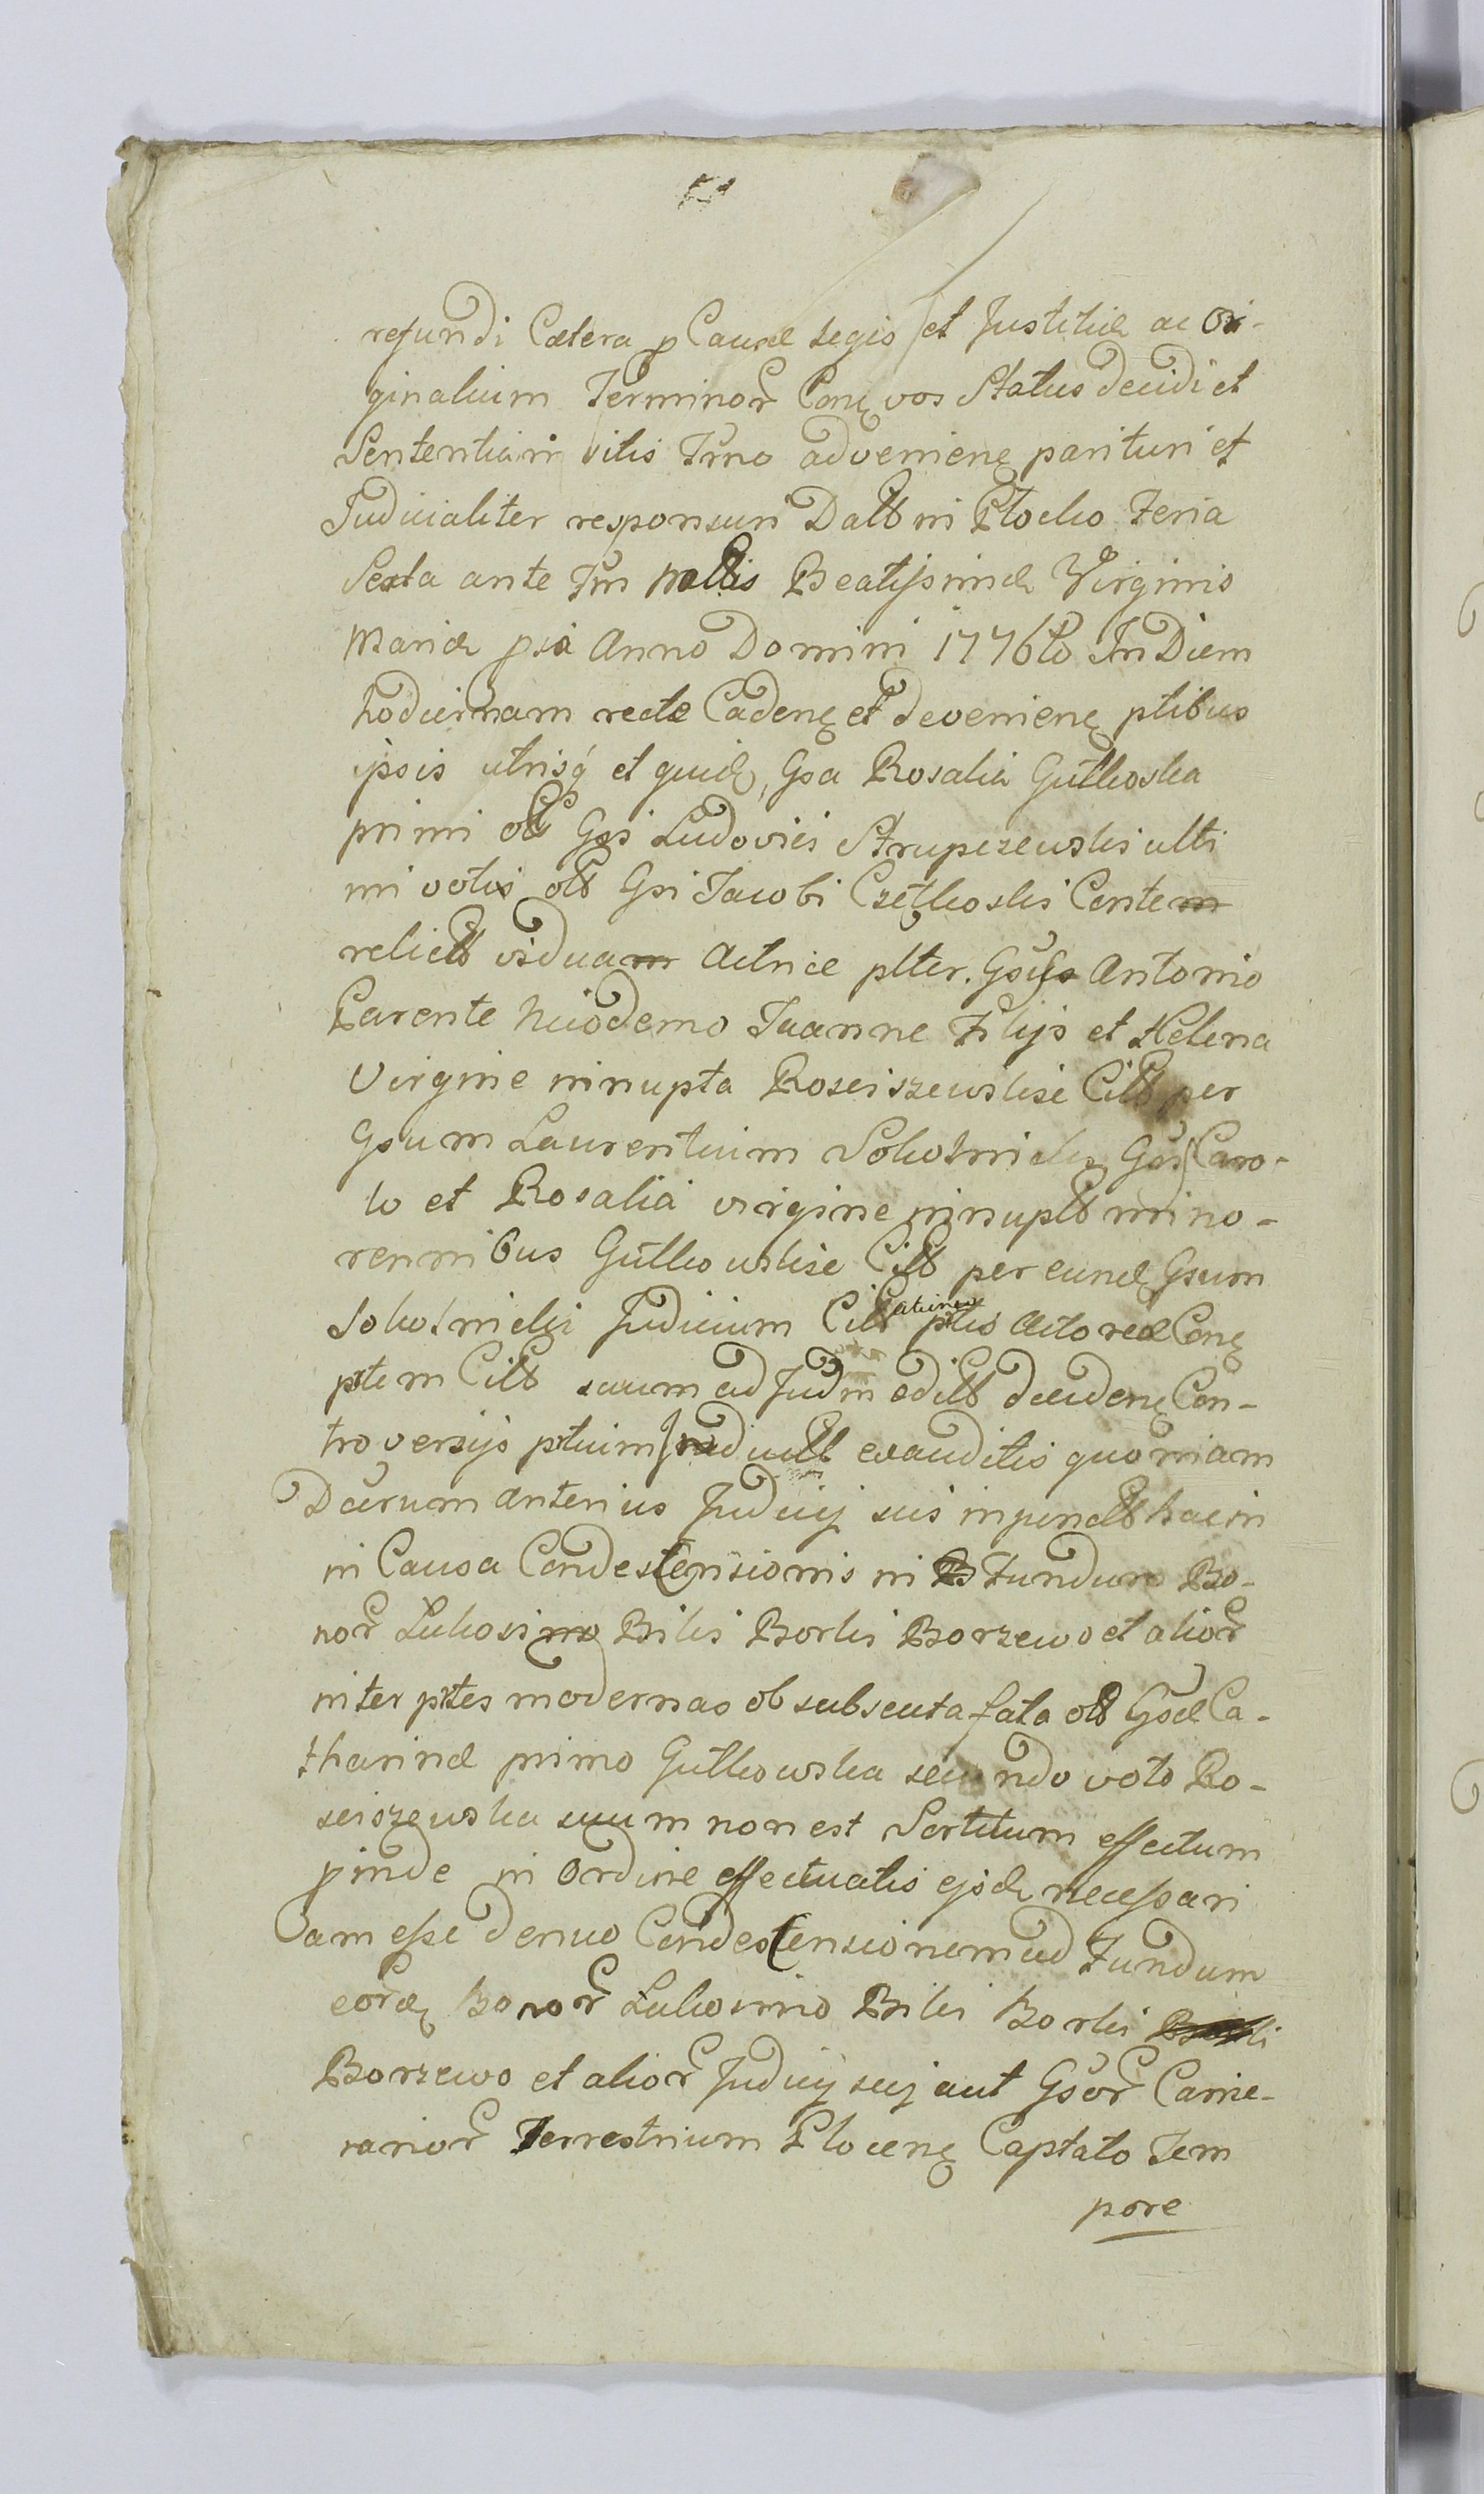 refundi Cætera p Causæ Legis et Justitiæ ac Ori-
ginalium Terminor Conę vos Status decidi et
Sententiam Litis Trno advenienę parituri et
Judicialiter responsuri Datt in Plocko Feria
Sexta ante Fm Nattis Beatissimæ Virginis
Mariæ pxa Anno Domini 1776to In Diem
hodiernam recte Cadenę et devenienę ptibus
ipsis utrisq et quidę, Gsa Rosalia Gutkoska
primi ott Gsi Ludovici Strupczewskis ulti
mi votis ott Gsi Jacobi Czetkoskis Conte
relictt vidua Actrice plter. Gsiss Antonio
Parente Nicodemo Joanne Filijs et Helena
Virgine innupta Rosciszewskise Citt per
Gsum Laurentium Sokolnicki, Gsis Caro-
lo et Rosalia virgine innuptt mino-
rennibus Gutkowskise Citt per eundę Gsum
Sokolnicki Judicium Citt ptis Actoreæ Conę
ptem Citt suum ad Judm editt decidenę Con-
troversijs ptium Inductt exauditis quoniam
Dcrum anterius Judicij sui in punctt hac in
in Causa Condescensionis in Fundum Bo-
nor Lukosino Bilis Borki Borzewo et alior
inter ptes modernas ob subsecuta fata ott Gsæ Ca-
tharinæ primo Gutkowska secundo voto Ro-
sciszewska suum non est Sortitum effectum
pinde in Ordine effectuatis ejsdę necessari
am esse denuo Condescensionem ad Fundum
eordę Bonor Lukosino Bilis Borki
Borzewo et alior Judicij sui aut Gsor Came-
rarior Terrestrium Plocenę Captato Tem
pore